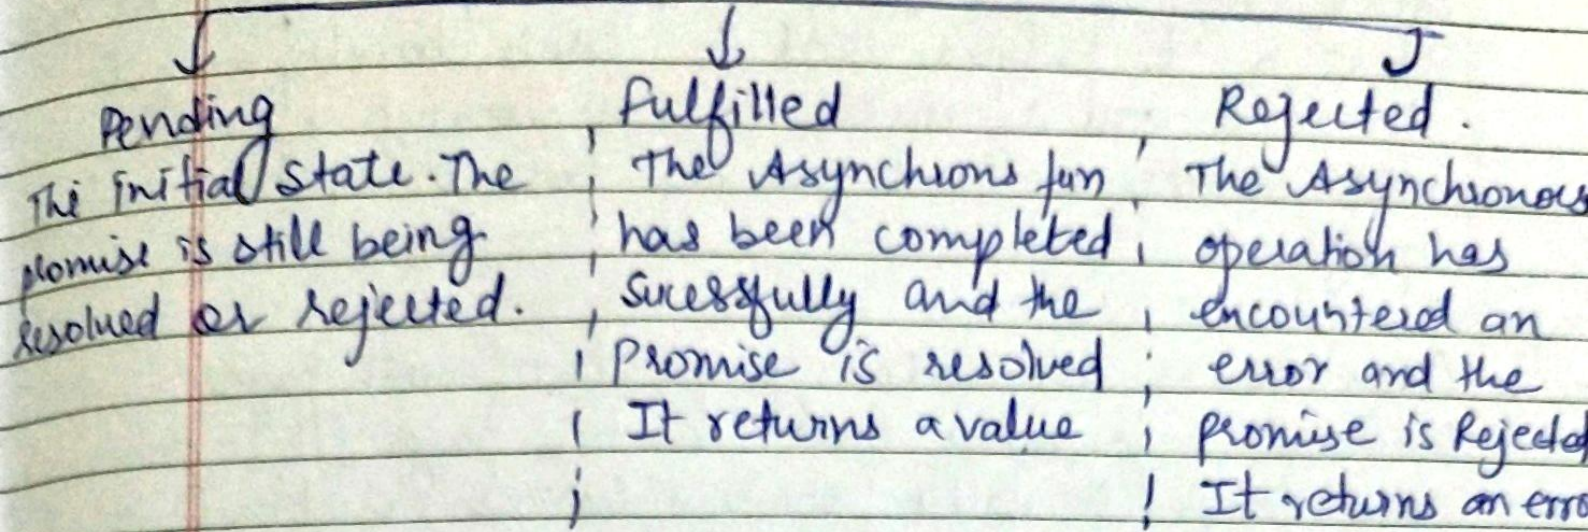 Pending
The initial state. The
promise is still being
resolved or rejected.
Fulfilled
The Asynchrons fun
has been completed
sucessfully and the
Promise is resolved
It returns a value
Rejected.
The Asynchronous
operation has
encountered an
error and the
promise is Rejected
It returns an erro